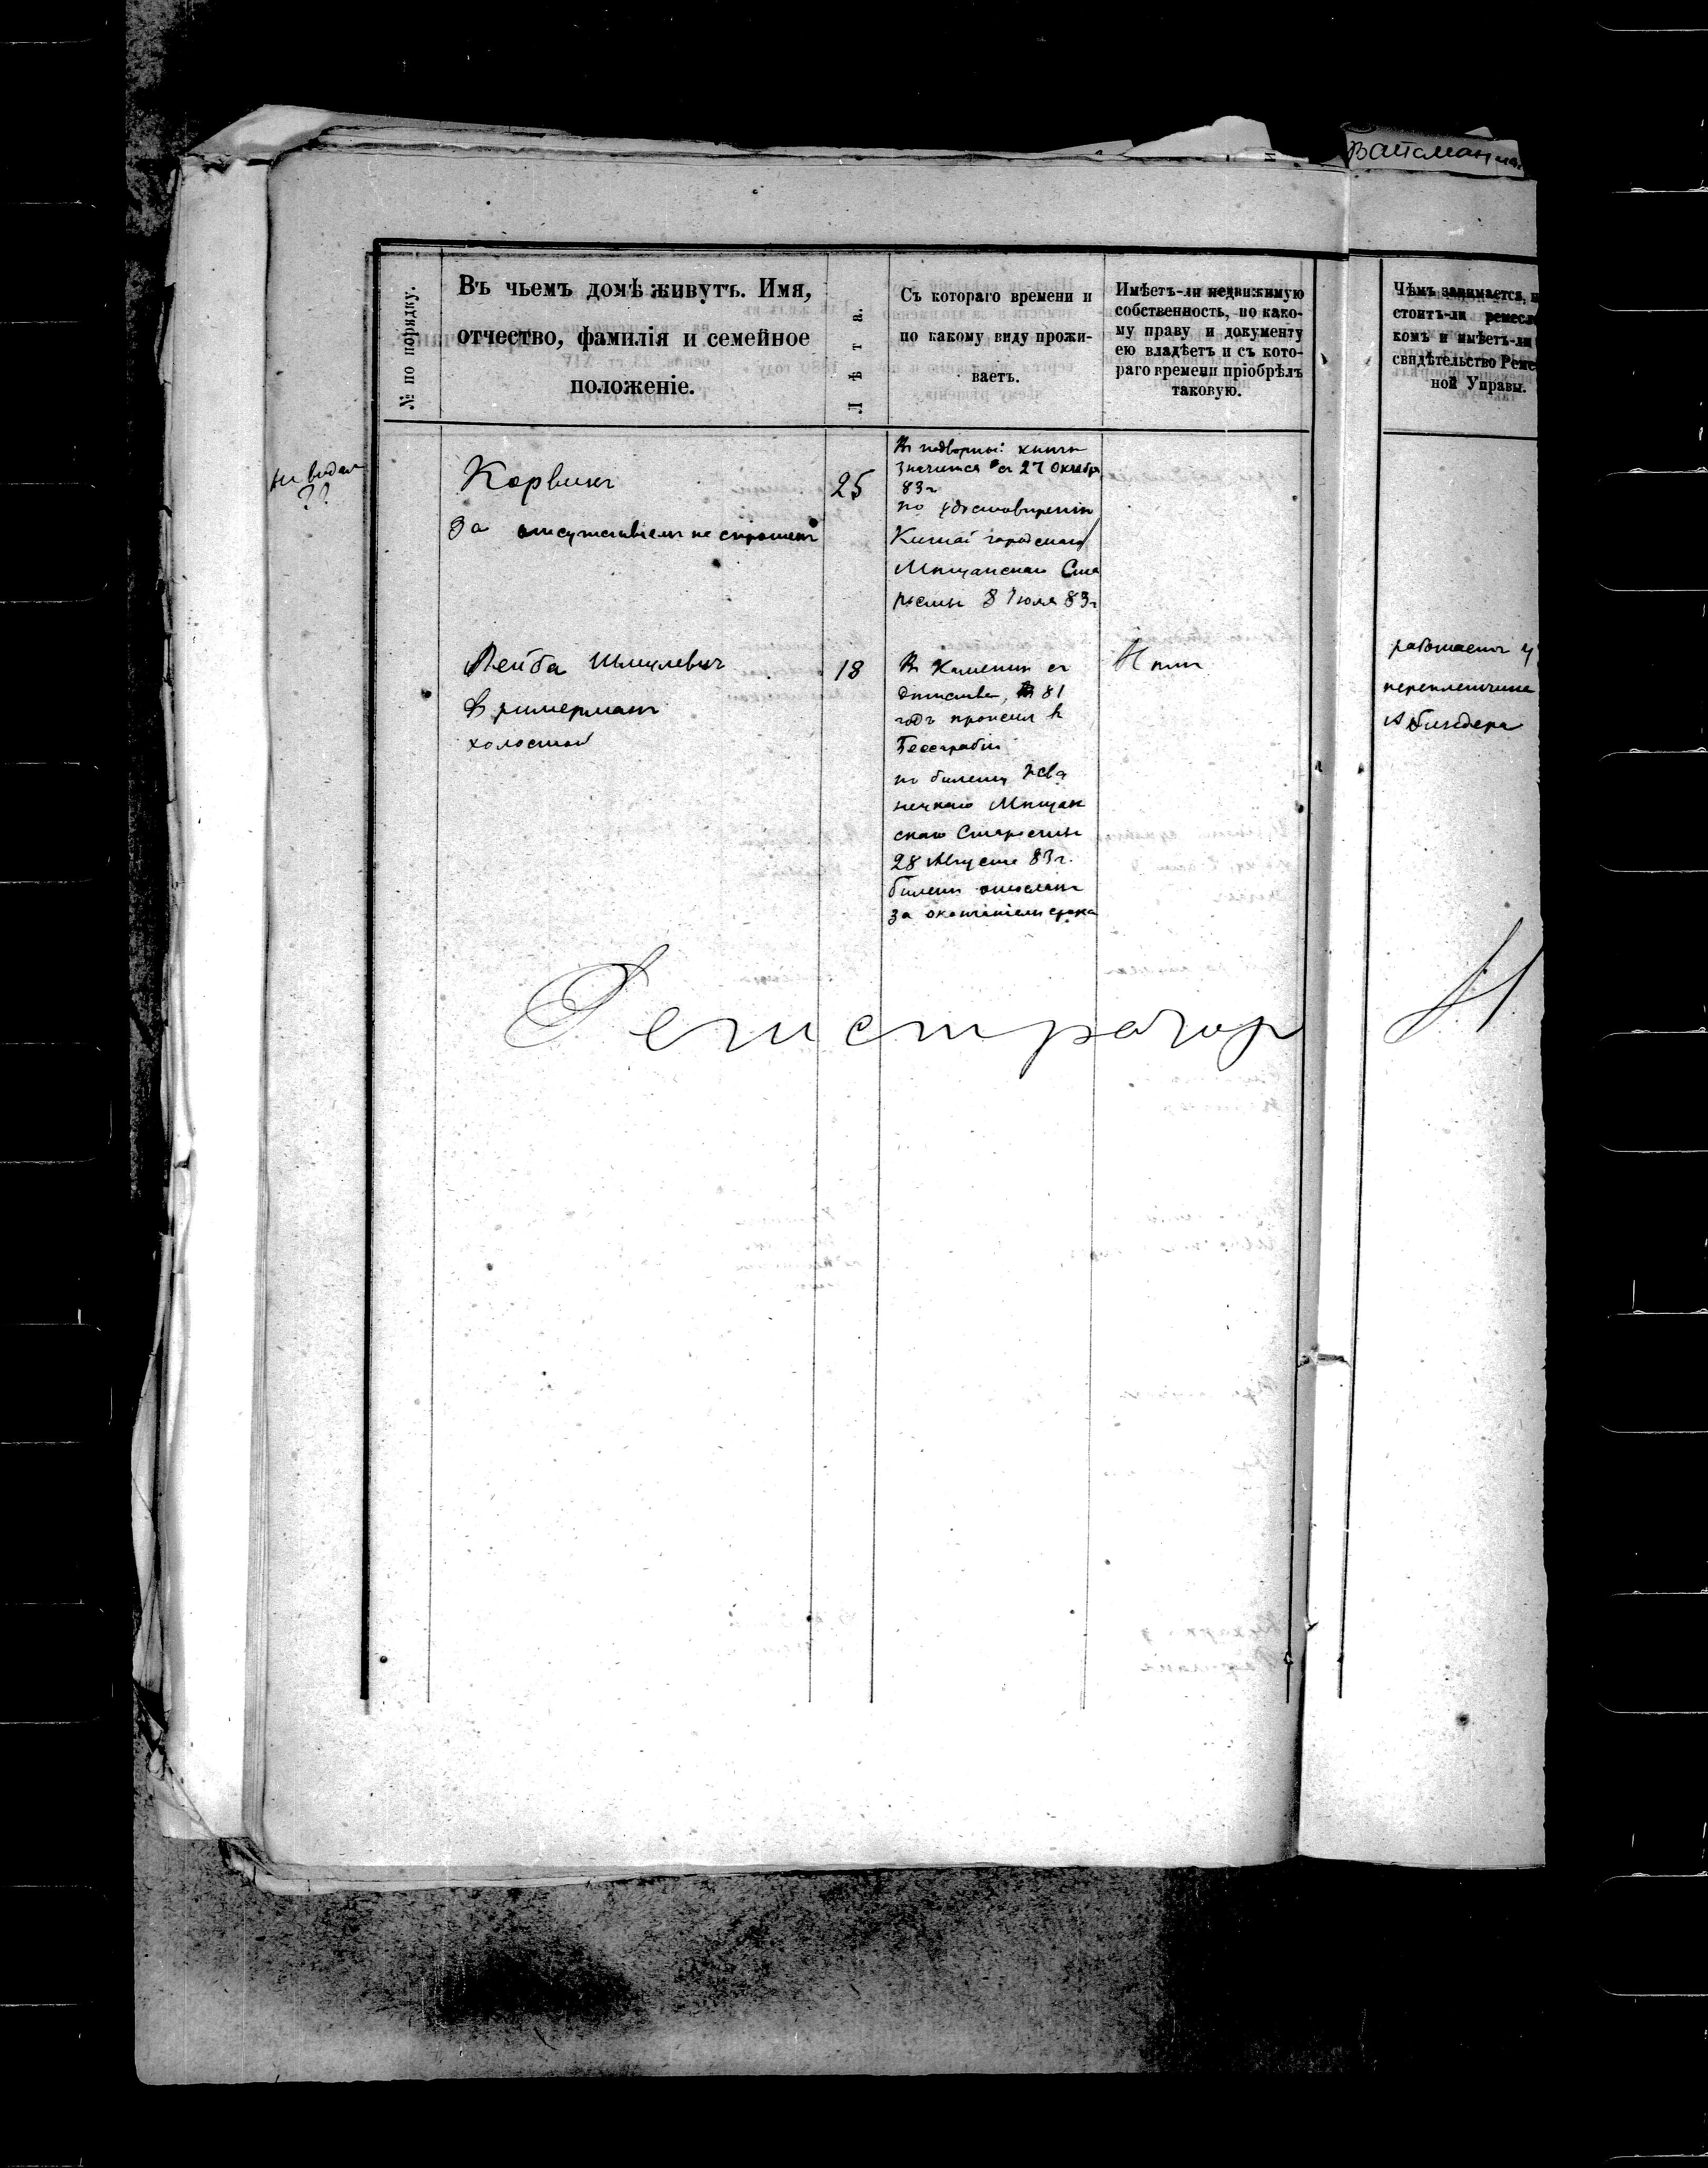 Вайсман
№ по порядку.
Въ чьемъ домѣ живутъ. Имя,
отчество, фамилія и семейное
положеніе.
Лѣта.
Съ котораго времени и
по какому виду прожи-
ваетъ.
Имѣетъ-ли недвижимую
собственность, по како-
му праву и документу
ею владѣетъ и съ кото-
раго времени пріобрѣлъ
таковую.
Чѣмъ занимается,
стоитъ-ли ремесл
комъ и имѣетъ-ли
свидѣтельство Реме
ной Управы.
не видал
??
Корвинъ
За отсутствіемъ не спрошенъ
25
Въ подворной книгѣ
значится съ 27 Октября
83г
по удостовѣренію
Китай городскаго
Мѣщанскаго Ста
росты 8 Іюля 83г
Лейба Шмулевъ
холостой
18
Въ Каменцѣ съ
дѣтства, 81
годъ в
Бессарабіи
по билету Жва
нецкаго Мѣщан
скаго Старосты
28 Августа 83г.
билетъ отосланъ
за окончаніемъ срока
Нѣтъ
работаетъ у
переплетчика
Абиндера
Регистраторъ